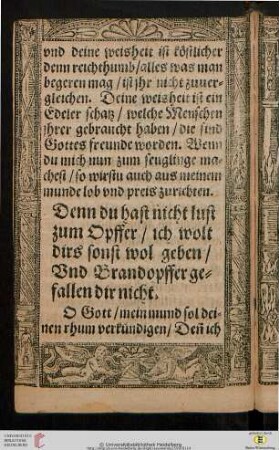 vnd deine weisheit ist köstlicher
denn reichthumb/alles was man
begeren mag/ist jhr nicht zuuer-
gleichen. Deine weisheit ist ein
Edeler schatz/welche Menschen
jhrer gebraucht haben/die sind
Gottes freunde worden. Wenn
du mich nun zum seuglinge ma-
chest/so wirstu auch aus meinem
munde lob vnd preis zurichten.
Denn du hast nicht lust
zum Opffer/ich wolt
dirs sonst wol geben/
Vnd Brandopffer ge-
fallen dir nicht.
O Gott/mein mund sol dei-
nen rhum verkündigen/Deñ ich
UNIVERSITÄTS-
BIBLIOTHEK
HEIDELBERG
© Universitätsbibliothek Heidelberg